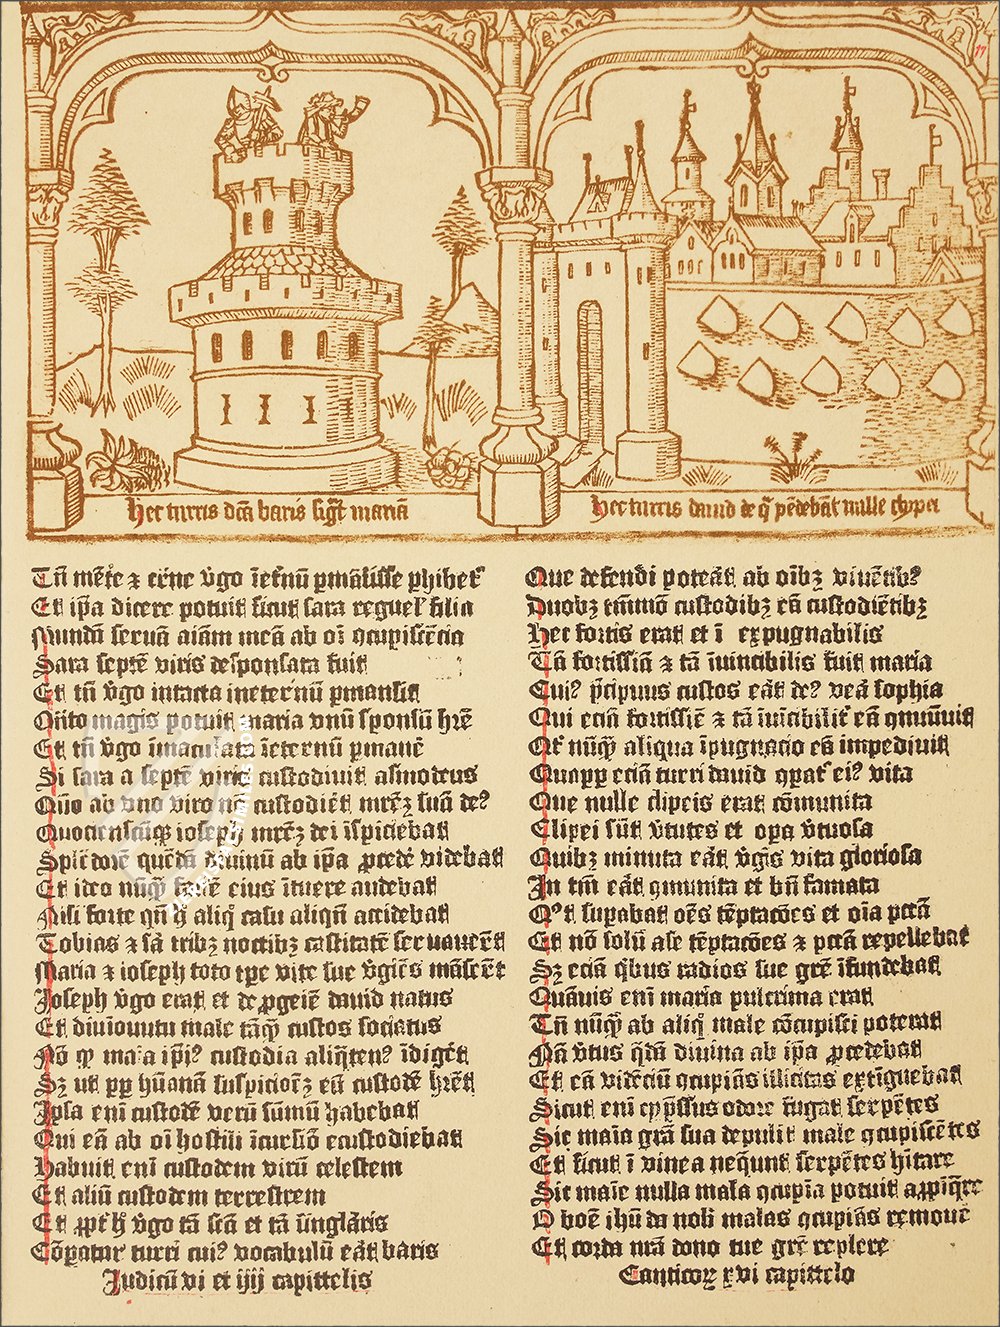 Hec turris dcā baris sigt mariā
Hec turris dauid de q̄ pēdebāt mille clypei
Tn̄ mēte ⁊ carne v̄go īet̄nū pmāsisse phibet᷑
Et ip̄a dicere potuit sicut sara reguel᷑ filia
Mundā seruā aīam meā ab oī ꝯcupiscētia
Sara septē viris desponsata fuit
Et tn̄ v̄go intacta ineternū pmansit
Q̄nto magis potuit maria vnū sponsū hr̄e
Et tn̄ v̄go īmaculata īeternū pmanē
Si sara a septē viris custodiuit asmodeus
Quō ab vno viro nō custodiēt mr̄eꝫ suā de᷒
Quociensciq̄ꝫ ioseph mr̄eꝫ dei īspiciebat
Splēdorē quēdā diuinū ab ip̄a ꝓcedē videbat
Et ideo nūq̄ faciē eius ītuere audebat
Nisi forte qn̄ ex aliq̊ casu aliqn̄ accidebat
Tobias ⁊ sa tribꝫ noctibꝫ castitatē seruauerūt
Maria ⁊ ioseph toto tp̄e vite sue v̄gīes māserūt
Joseph v̄go erat et de ꝓgeīe dauid natus
Et diuīo nutu male tāq̄ custos sociatus
Nō q maīa ip̄i᷒ custodia aliq̄ten᷒ īdiget
Sꝫ ut pp hūanā suspicionē eū custodē hr̄et
Ipsa enī custodē verū sūmū habebat
Qui eā ab oī hostili īcursiō ecustodiebat
Habuit enī custodem virū celestem
Et aliū custodem terrestrem
Et ꝓpt h̄ v̄go tā scā et tā singlaris
Cōpatur turri cui᷒ vocabulū eāt baris
Judicū vi et iiij capittelis
Que defendi poteāt ab oībꝫ viuētibꝫ
Duobꝫ tn̄mō custodibꝫ eā custodiētibꝫ
Hec fortis erat et ī expugnabilis
Tā fortissīa ⁊ tā īuincibilis fuit maria
Cui᷒ p̄cipuus custos eāt de᷒ vea sophia
Qui eciā fortissīe ⁊ tā īuīcibilit᷑ eā ꝯmuniuit
Qt nūq̄ aliqua īpugnacio eā impediuit
Quapp eciā turri dauid ꝯpat᷑ ei᷒ vita
Que mille clipeis erat cōmunita
Clipei sūt v̄tutes et opa v̄tuosa
Quibꝫ minuta eāt v̄gīs vita gloriosa
In tm̄ eāt ꝯmunita et bn̄ famata
Qt supabat oēs tēptacōes et oīa pctā
Et nō solū a se tēptacōes ⁊ pctā repellebat
Sꝫ eciā qibus radios sue grē īfundebat
Quāuis enī maria pulcrima erat
Tn̄ nūq̄ ab aliq̊ male cōcupisci poterat
Nā v̄tus q̄dā diuina ab ip̄a ꝓcedebat
Et eā vidēciū ꝯcupiās illicitas extīguebat
Sicut enī cyp̄ssus odore fugat serpētes
Sic maīa grā sua depulit male ꝯcupiscētes
Et sicut ī vinea neq̄unt serpētes hītare
Sic maīe nulla mala ꝯcupīa potuit appīqre
O boē ihū da nob malas ꝯcupiās remouē
Et corda nrā dono tue grē replere
Canticoꝝ xvi capittelo